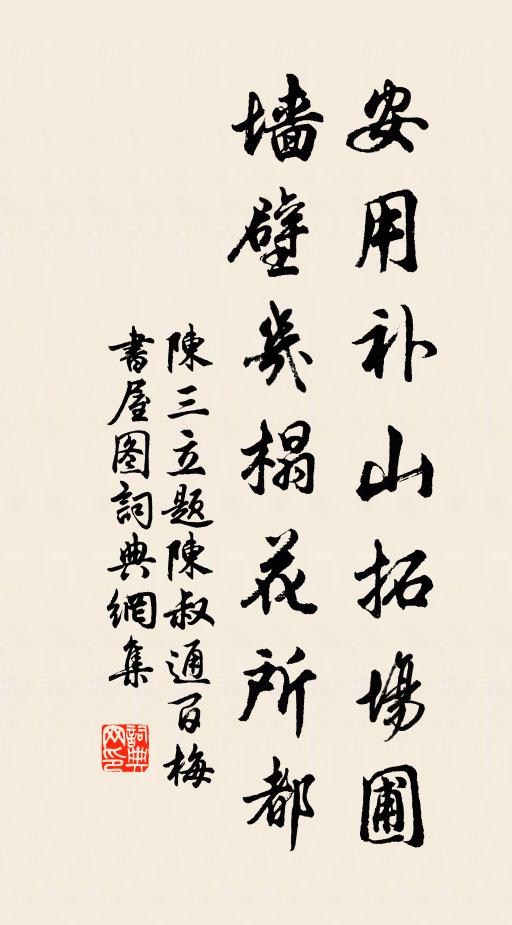 安用补山拓場圃
墙壁幾榻花所都
陳三立题陳叔通百梅
書屋图詞典網集
詞典
网印